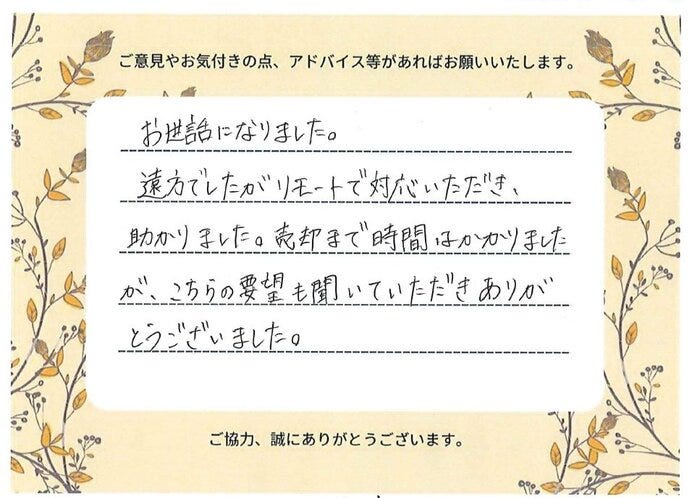 ご意見やお気付きの点、アドバイス等があればお願いいたします。
お世話になりました。
遠方でしたがリモートで対応いただき、
助かりました。売却まで時間はかかりました
が、こちらの要望も聞いていただきありが
とうございました。
ご協力、誠にありがとうございます。